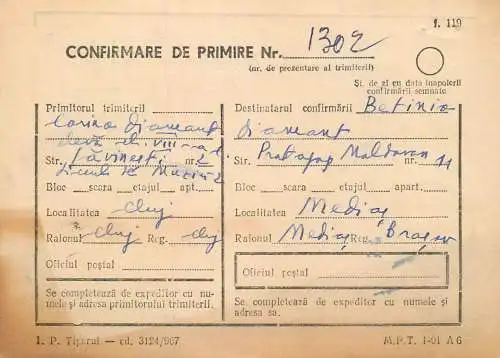 f. 119
CONFIRMARE DE PRIMIRE Nr. 1302
(nr. de prezentare al trimiterii)
Șt. de zi cu data înapoierii
confirmării semnate
Primitorul trimiterii
Corina Diamant
elevă cl. VIII-a
Str. Săvinești nr. 2
Liceul de Muzică 2
Bloc scara etajul apt.
Localitatea Cluj
Raionul Cluj Reg. Cluj
Oficiul poștal
Se completează de expeditor cu nu-
mele și adresa primitorului trimiterii.
Destinatarul confirmării Betinia
Diamant
Str. Moldovan nr. 11
Bloc scara etajul apart.
Localitatea Mediaș
Raionul Mediaș Reg. Brașov
Oficiul poștal
Se completează de expeditor cu numele și
adresa sa.
I. P. Tiparul — cd. 3124/967
M.P.T. 1-01 A 6